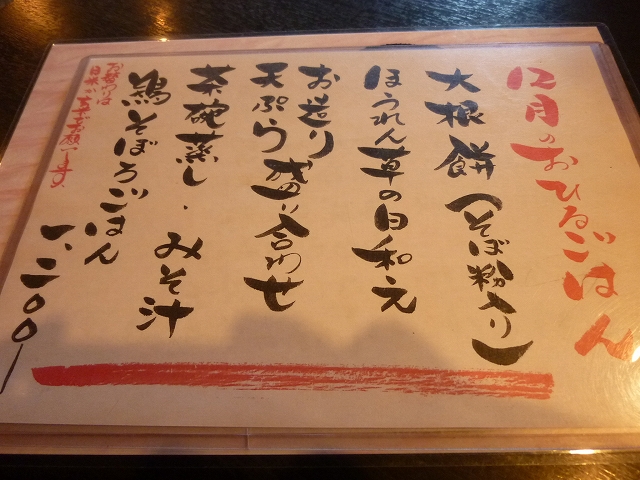 12月のおひるごはん
大根餅(そば粉入り)
ほうれん草の白和え
お造り
天ぷら盛り合わせ
茶碗蒸し・みそ汁
鶏そぼろごはん
一、二〇〇
お替わりは